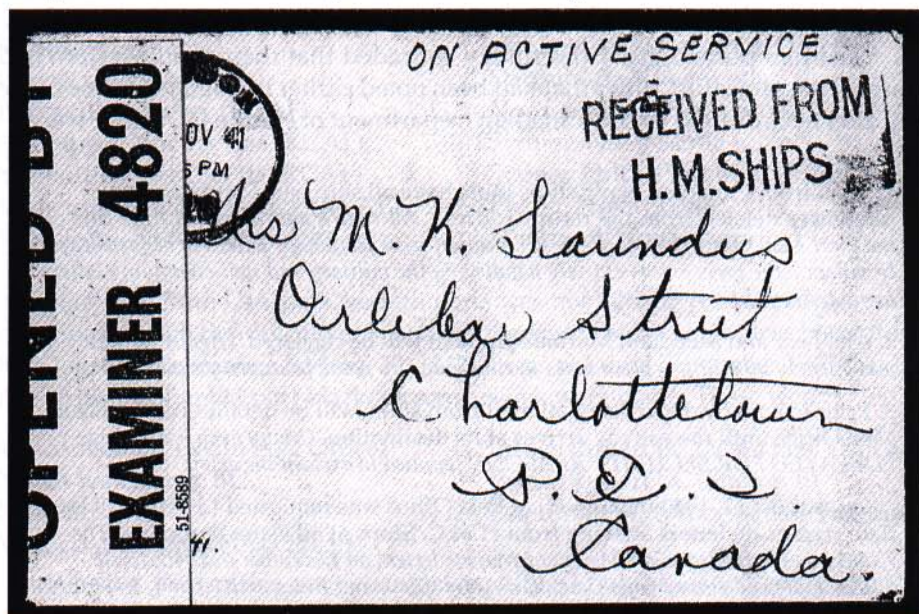 OPENED BY
EXAMINER 4820
51-8589
OV 41
5 PM
ON ACTIVE SERVICE
RECEIVED FROM
H.M.SHIPS
Mrs M. K. Saunders
Orlebar Street
Charlottetown
P. E. I
Canada.
41.